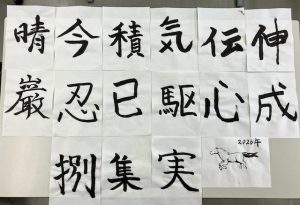 晴 今 積 気 伝 伸
巌 忍 己 駆 心 成
捌 集 実
2020年